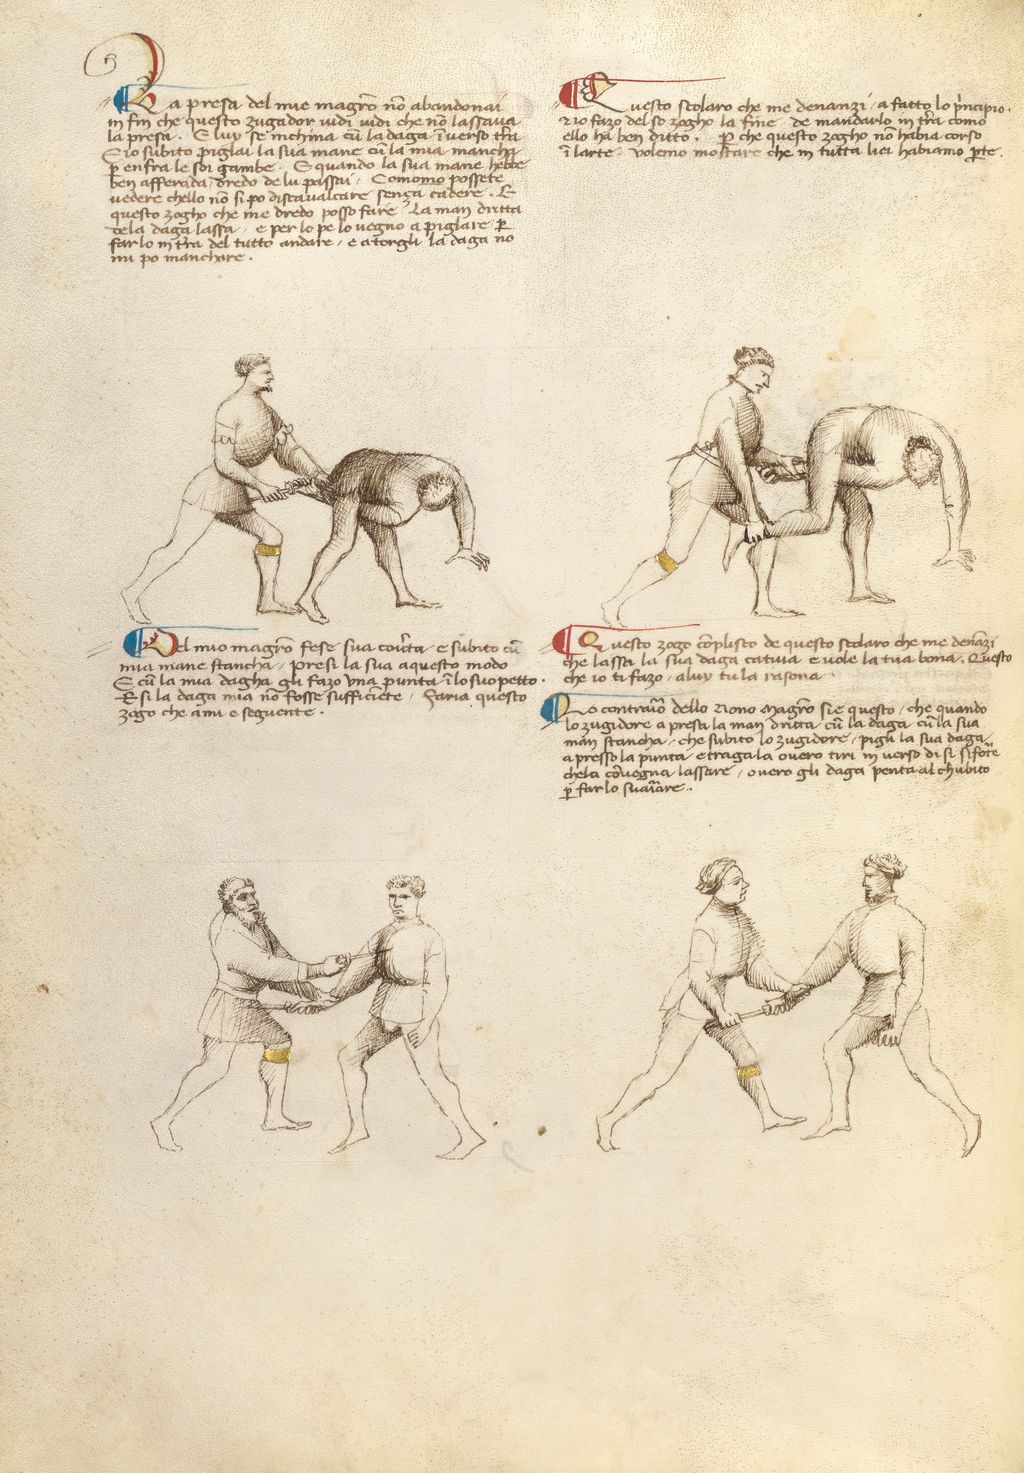 La presa del mie magrō nō abandonai
in fin che questo zugador vidi vidi che nō lassava
la presa. E luy se inchina cū la daga īverso tra
E io subito piglai la sua mane cū la mia mancha
p enfra le soi gambe. E quando la sua mane hebbe
ben afferada, dredo de lu passai, Comomo possete
vedere chello nō si po discavalcare senza cadere. E
questo zogho che me dredo posso fare La man dritta
dela daga lassa, e per lo pe lo vegno a piglare, p
farlo in tra del tutto andare, e a torgli la daga nō
mi po manchare.
Questo scolaro che me denanzi, a fatto lo principio.
E io fazo del so zogho la fine de mandarlo in tra como
ello ha ben ditto. P che questo zogho nō habia corso
ī larte volemo mostrare che in tutta liei habiamo pte.
Del mio magrō fese sua cov'ta e subito cū
mia mane stancha, presi la sua a questo modo
E cū la mia dagha gli fazo una punta ī lo suo petto.
E si la daga mia nō fosse sufficiēte, Faria questo
zogo che a mi e seguente.
Questo zogo cōplisto de questo scolaro che me denāzi
che lassa la sua daga cativa e vole la tua bona. Questo
che io ti fazo, a luy tu la rasona.
Lo contraio dello Nono Magrō si e questo, che quando
lo zugidore a presa la man dritta cū la daga cū la sua
man stancha, che subito lo zugidore, pigli la sua daga
apresso la punta e tragala overo tiri in verso di si si forte
chela cōvegna lassare, overo gli daga penta al chubito
p farlo svaiare.